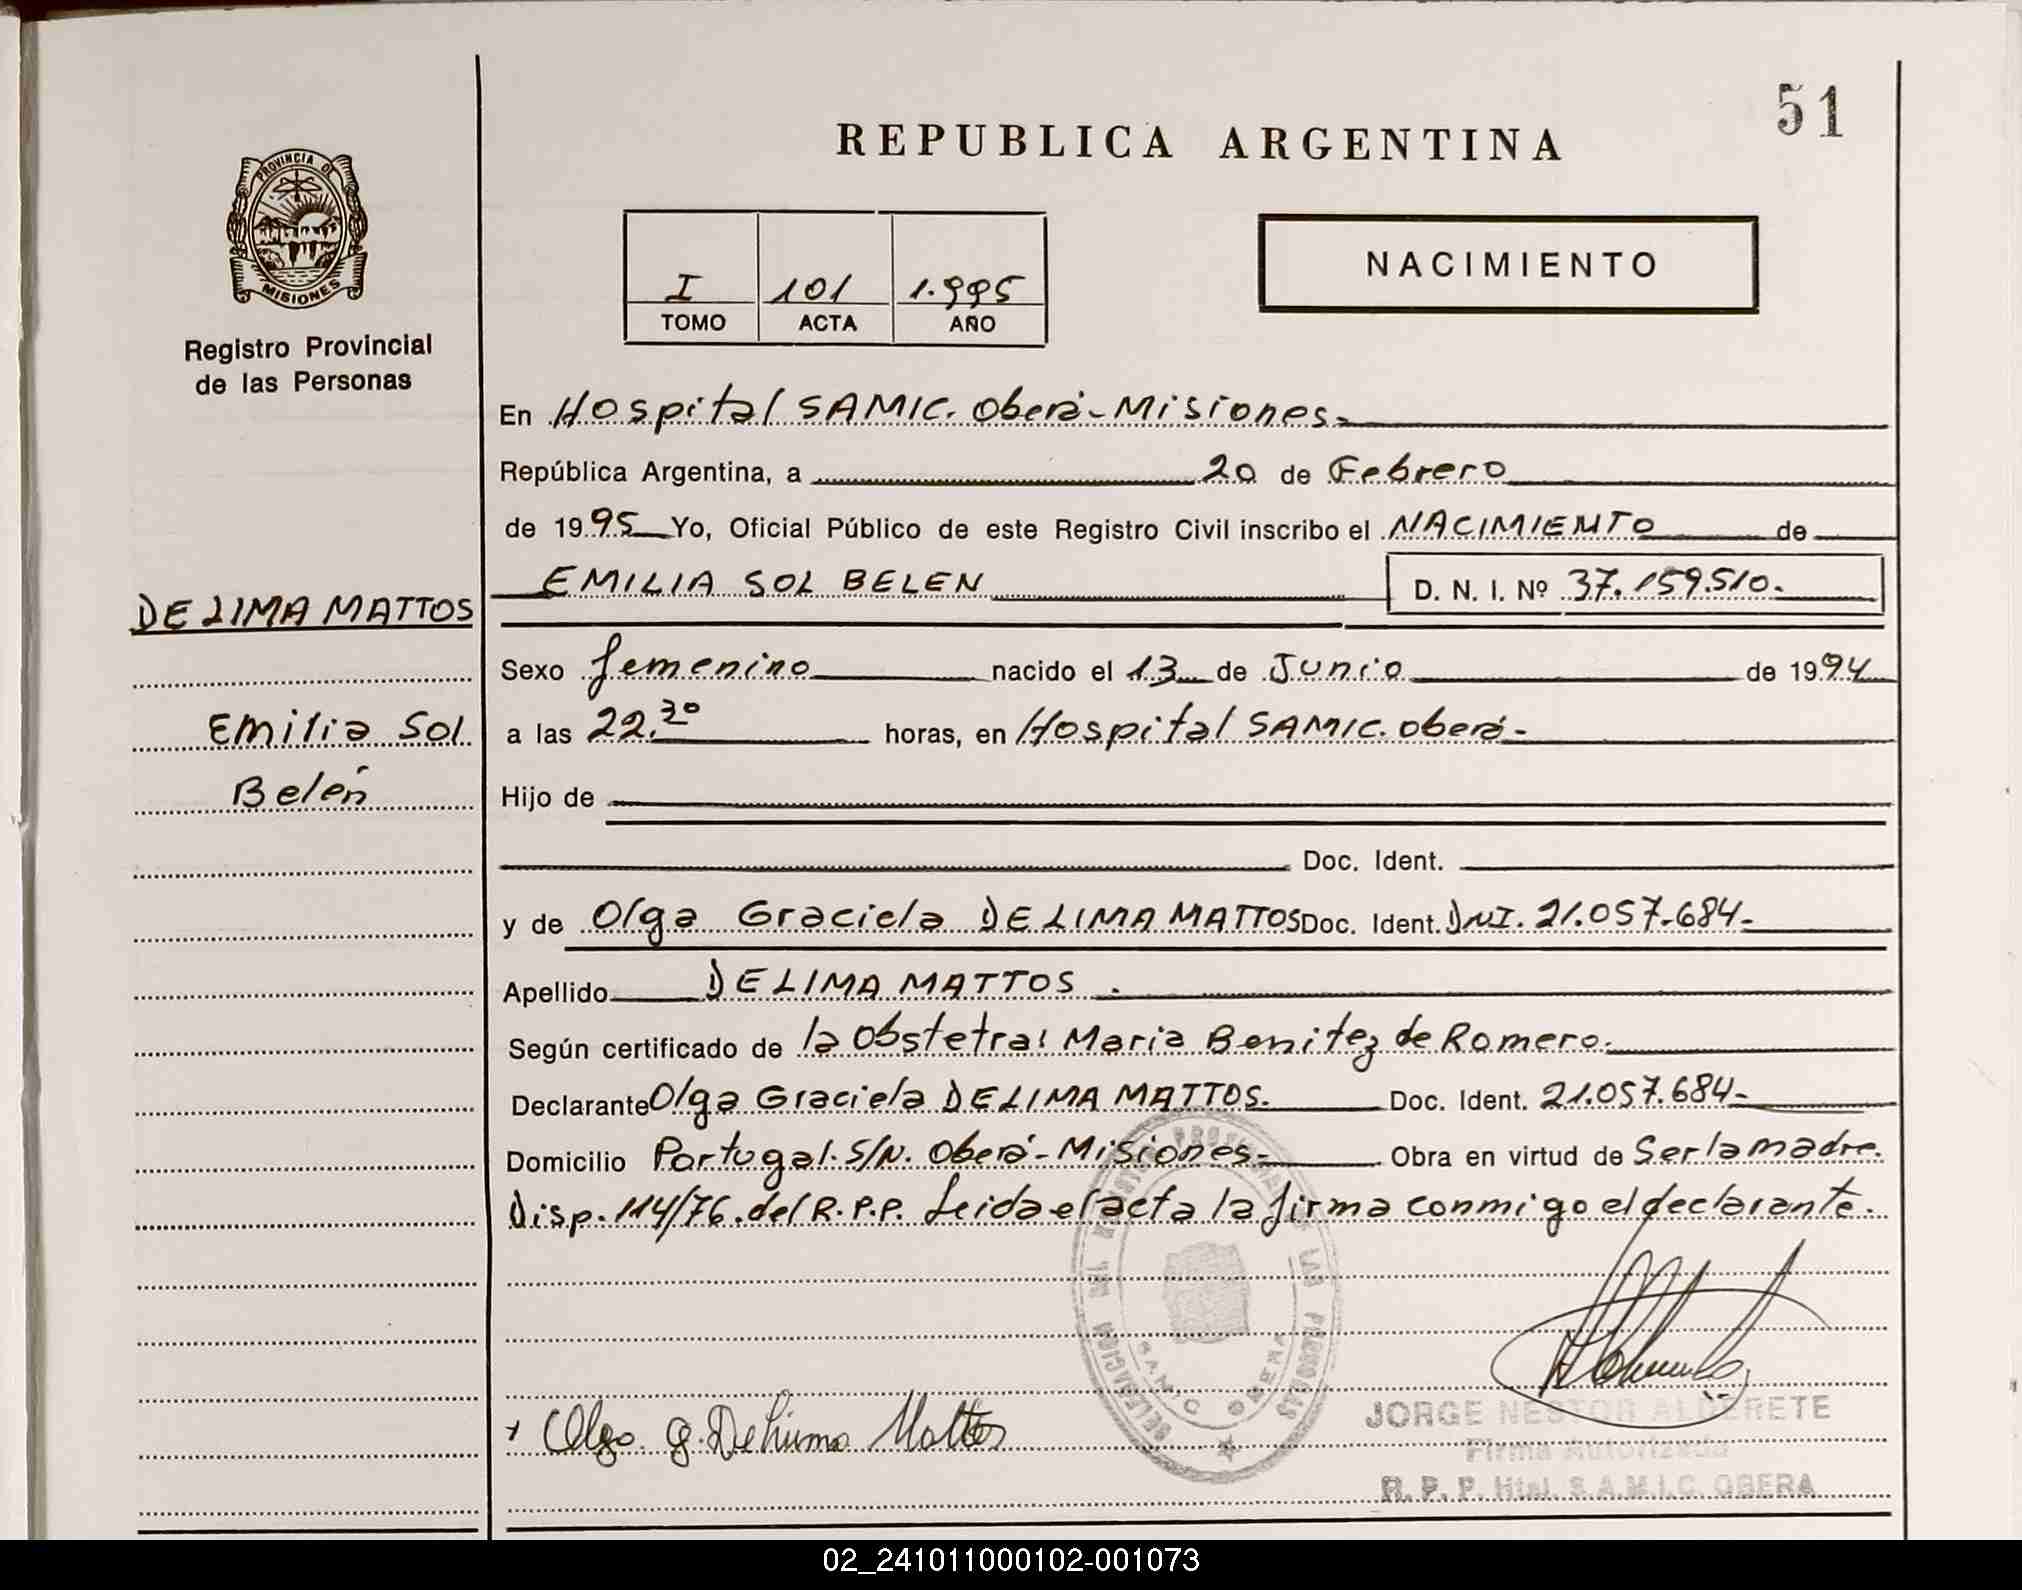 51
REPUBLICA ARGENTINA
PROVINCIA DE
MISIONES
Registro Provincial
de las Personas
I 101 1.995
TOMO ACTA AÑO
NACIMIENTO
En Hospital SAMIC. Oberá-Misiones-
República Argentina, a 20 de Febrero
de 1995 Yo, Oficial Público de este Registro Civil inscribo el NACIMIENTO de
EMILIA SOL BELEN D. N. I. Nº 37.159.510.-
DE LIMA MATTOS
Emilia Sol
Belén
Sexo femenino nacido el 13 de Junio de 1994
a las 22.30 horas, en Hospital SAMIC. Oberá-
Hijo de
Doc. Ident.
y de Olga Graciela DE LIMA MATTOS Doc. Ident. DNI. 21.057.684-
Apellido DE LIMA MATTOS.
Según certificado de la Obstetra: Maria Benitez de Romero.
Declarante Olga Graciela DE LIMA MATTOS. Doc. Ident. 21.057.684-
Domicilio Portugal. S/N. Oberá-Misiones- Obra en virtud de Ser la madre.
Disp. 114/76. del R.P.P. Leida el acta la firma conmigo el declarante.
DELEGACION DEL REGISTRO PROVINCIAL DE LAS PERSONAS
S.A.M.I.C. OBERA
Olga G. De Lima Mattos
JORGE NESTOR ALDERETE
Firma Autorizada
R. P. P. Htal. S.A.M.I.C. OBERA
02_241011000102-001073